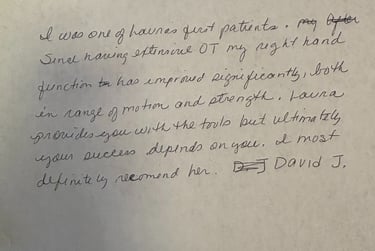 I was one of Lauras first patients. my After
Since having extensive OT my right hand
function to has improved significantly, both
in range of motion and strength. Laura
provides you with the tools but ultimately
your success depends on you. I most
definitely recomend her. D=J David J.